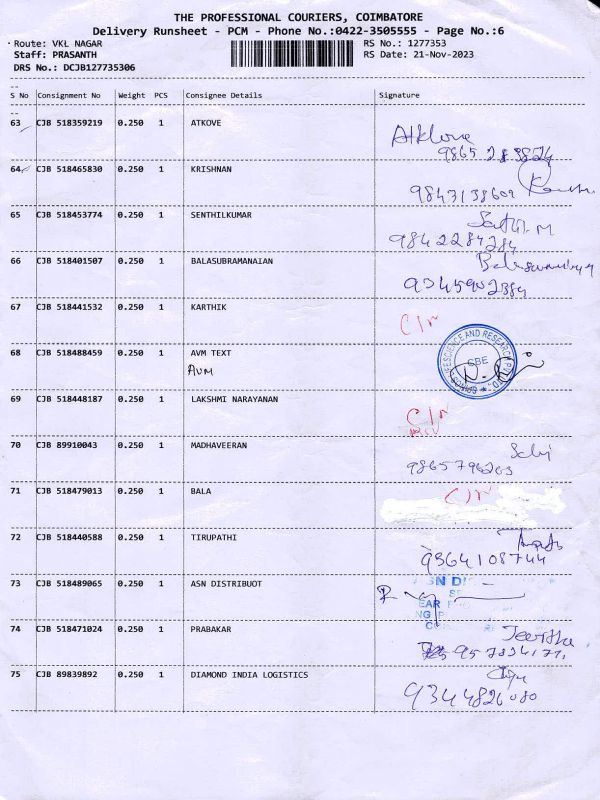 THE PROFESSIONAL COURIERS, COIMBATORE
Delivery Runsheet - PCM - Phone No.:0422-3505555 - Page No.:6
Route: VKL NAGAR RS No.: 1277353
Staff: PRASANTH RS Date: 21-Nov-2023
DRS No.: DCJB127735306
S No Consignment No Weight PCS Consignee Details Signature
63 CJB 518359219 0.250 1 ATKOVE
Atkove
64 CJB 518465830 0.250 1 KRISHNAN
9843138609
65 CJB 518453774 0.250 1 SENTHILKUMAR
9842284284
66 CJB 518401507 0.250 1 BALASUBRAMANAIAN
9345902384
67 CJB 518441532 0.250 1 KARTHIK
C/n
68 CJB 518488459 0.250 1 AVM TEXT
AVM
CBE
69 CJB 518448187 0.250 1 LAKSHMI NARAYANAN
C/n
70 CJB 89910043 0.250 1 MADHAVEERAN
9865796203
71 CJB 518479013 0.250 1 BALA
C/n
72 CJB 518440588 0.250 1 TIRUPATHI
9364108744
73 CJB 518489065 0.250 1 ASN DISTRIBUOT
74 CJB 518471024 0.250 1 PRABAKAR
75 CJB 89839892 0.250 1 DIAMOND INDIA LOGISTICS
9344826080